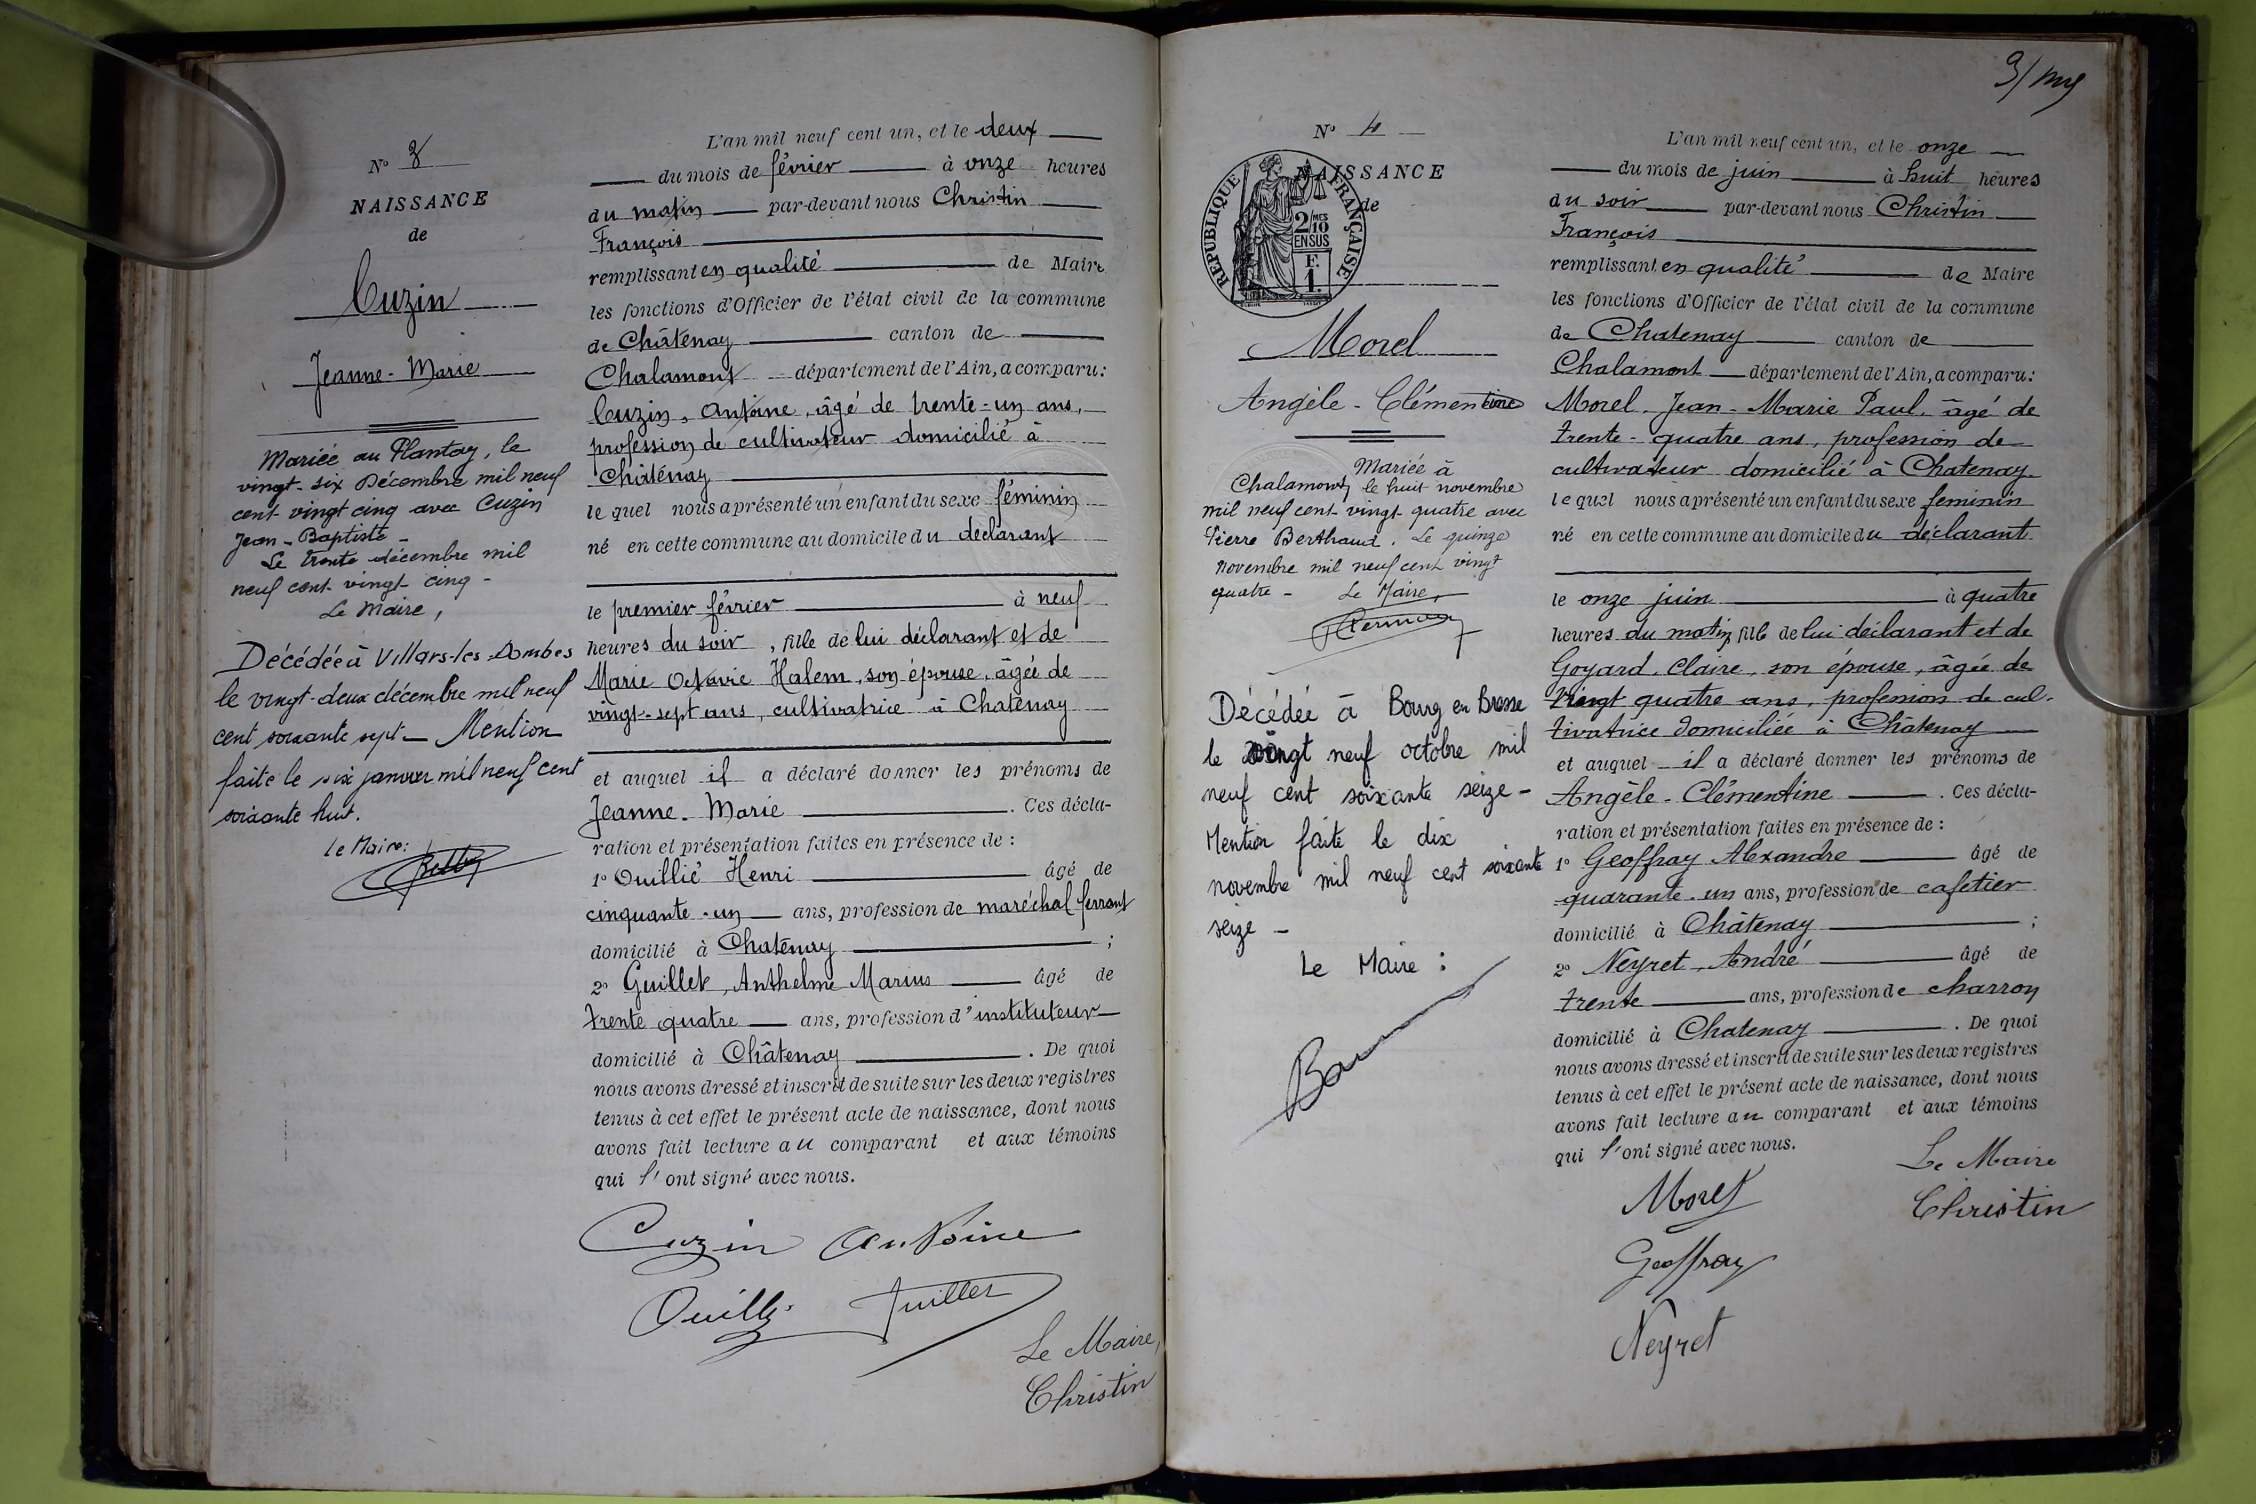 N° 3
NAISSANCE
de
Cuzin
Jeanne-Marie
Mariée au Plantay, le
vingt-six Décembre mil neuf
cent vingt cinq avec Cuzin
Jean-Baptiste -
Le trente décembre mil
neuf cent vingt cinq -
Le Maire,
Décédée à Villars-les-Dombes
le vingt-deux décembre mil neuf
cent soixante sept - Mention
faite le six janvier mil neuf cent
soixante huit.
Le Maire:
L'an mil neuf cent un, et le deux
du mois de février à onze heures
du matin par-devant nous Christin
François
remplissant en qualité de Maire
les fonctions d'Officier de l'état civil de la commune
de Châtenay canton de
Chalamont département de l'Ain, a comparu:
Cuzin, Antoine, âgé de trente-un ans,
profession de cultivateur domicilié à
Châtenay
le quel nous a présenté un enfant du sexe féminin
né en cette commune au domicile du déclarant
le premier février à neuf
heures du soir, fille de lui déclarant et de
Marie Octavie Halem, son épouse, âgée de
vingt-sept ans, cultivatrice à Chatenay
et auquel il a déclaré donner les prénoms de
Jeanne-Marie. Ces décla-
ration et présentation faites en présence de :
1° Ouillié Henri âgé de
cinquante-un ans, profession de maréchal ferrant
domicilié à Chatenay ;
2° Guillet, Anthelme Marius âgé de
trente quatre ans, profession d'instituteur
domicilié à Châtenay. De quoi
nous avons dressé et inscrit de suite sur les deux registres
tenus à cet effet le présent acte de naissance, dont nous
avons fait lecture au comparant et aux témoins
qui l'ont signé avec nous.
Cuzin Antoine
Guillet
Le Maire,
Christin
N° 4
NAISSANCE
de
RÉPUBLIQUE FRANÇAISE
2/10MES
EN SUS
F.
1.
Morel
Angèle-Clémentine
Mariée à
Chalamont, le huit novembre
mil neuf cent vingt quatre avec
Pierre Berthaud. Le quinze
novembre mil neuf cent vingt
quatre - Le Maire,
Décédée à Bourg en Bresse
le vingt neuf octobre mil
neuf cent soixante seize -
Mention faite le dix
novembre mil neuf cent soixante
seize -
Le Maire :
L'an mil neuf cent un, et le onze
du mois de juin à huit heures
du soir par-devant nous Christin
François
remplissant en qualité de Maire
les fonctions d'Officier de l'état civil de la commune
de Chatenay canton de
Chalamont département de l'Ain, a comparu:
Morel, Jean-Marie Paul, âgé de
trente-quatre ans, profession de
cultivateur domicilié à Chatenay
le quel nous a présenté un enfant du sexe feminin
né en cette commune au domicile du déclarant
le onze juin à quatre
heures du matin, fille de lui déclarant et de
Goyard, Claire, son épouse, âgée de
vingt quatre ans, profession de cul-
tivatrice domiciliée à Châtenay
et auquel il a déclaré donner les prénoms de
Angèle-Clémentine. Ces décla-
ration et présentation faites en présence de :
1° Geoffray Alexandre âgé de
quarante-un ans, profession de cafetier
domicilié à Châtenay ;
2° Neyret, André âgé de
trente ans, profession de charron
domicilié à Chatenay. De quoi
nous avons dressé et inscrit de suite sur les deux registres
tenus à cet effet le présent acte de naissance, dont nous
avons fait lecture au comparant et aux témoins
qui l'ont signé avec nous.
Le Maire
Morel
Christin
Geoffray
Neyret